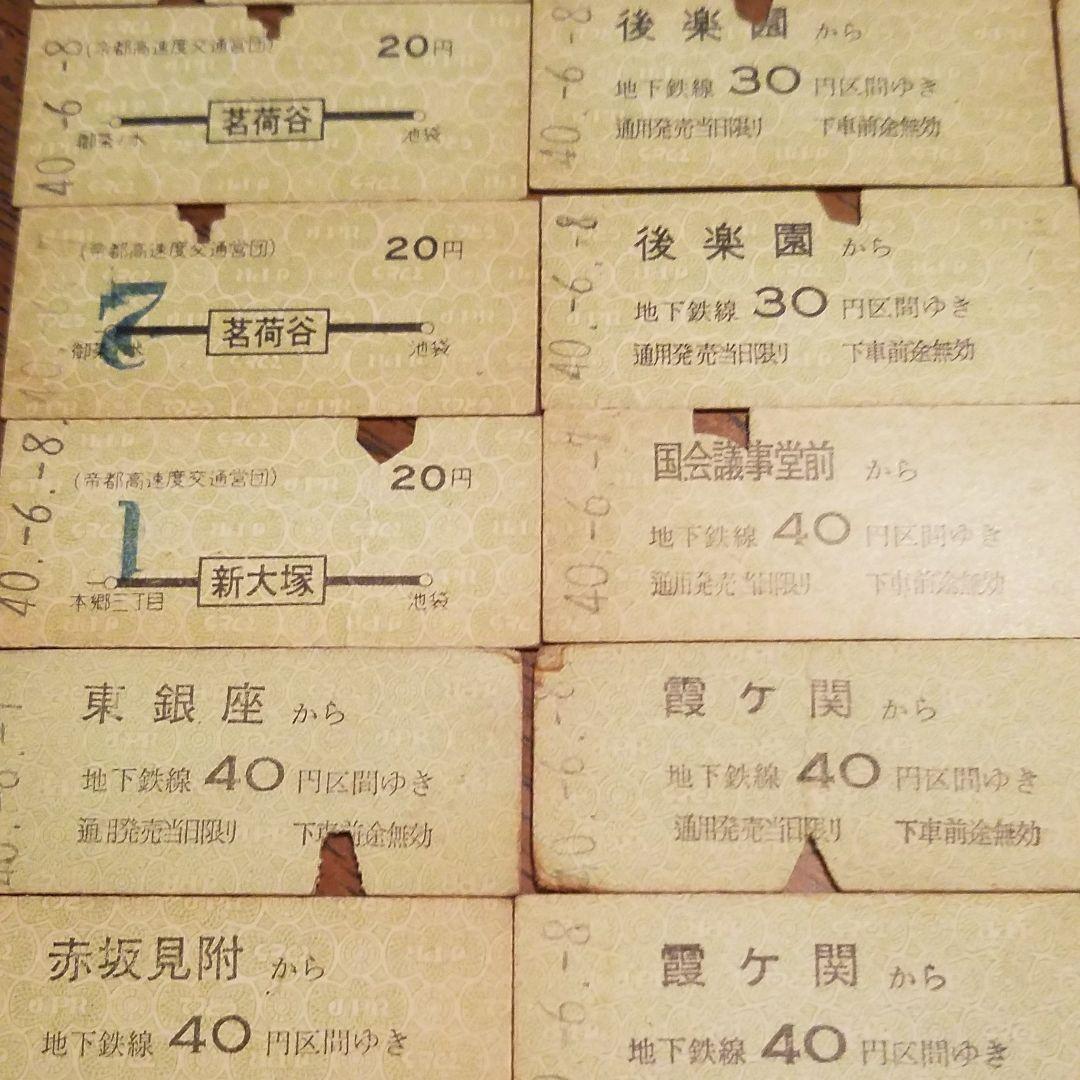 40.-6.-8
(帝都高速度交通営団)
20円
茗荷谷
御茶ノ水
池袋
(帝都高速度交通営団)
20円
2
茗荷谷
池袋
40.-6.-8.
(帝都高速度交通営団)
20円
1
新大塚
本郷三丁目
池袋
東銀座から
地下鉄線 40 円区間ゆき
通用発売当日限り 下車前途無効
赤坂見附から
地下鉄線 40 円区間ゆき
40.-6.-8
後楽園から
地下鉄線 30 円区間ゆき
通用発売当日限り 下車前途無効
40.-6.-8
後楽園から
地下鉄線 30 円区間ゆき
通用発売当日限り 下車前途無効
国会議事堂前から
地下鉄線 40 円区間ゆき
通用発売当日限り 下車前途無効
霞ケ関から
地下鉄線 40 円区間ゆき
通用発売当日限り 下車前途無効
-6.-8
霞ケ関から
地下鉄線 40 円区間ゆき